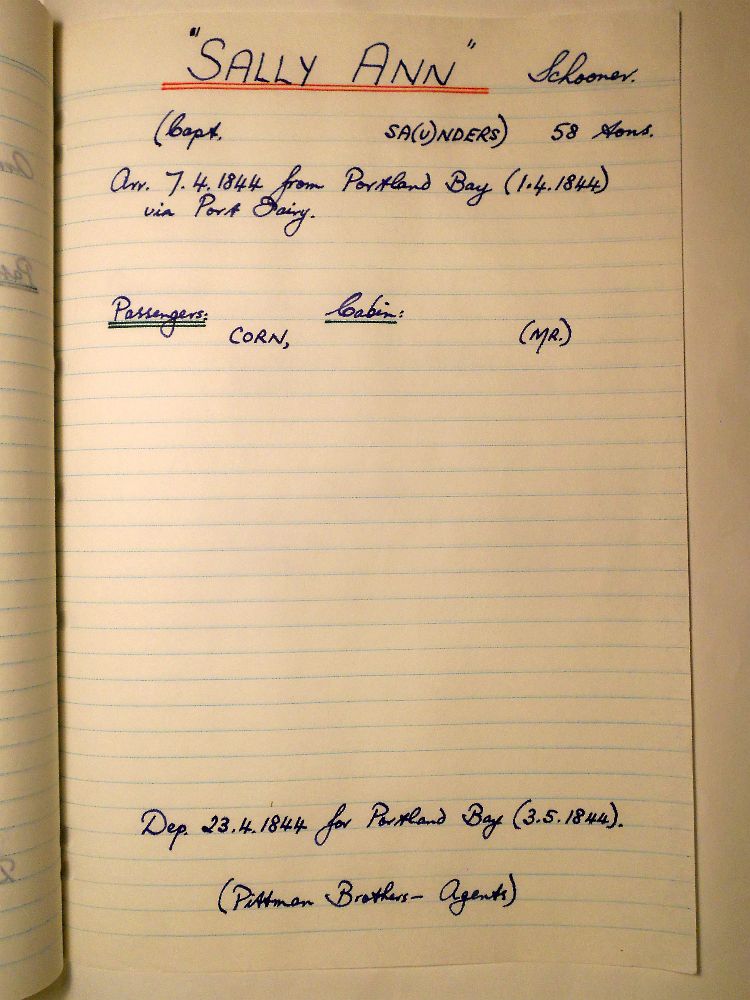 "SALLY ANN" Schooner.
(Capt. SA(U)NDERS) 58 tons.
Arr. 7.4.1844 from Portland Bay (1.4.1844)
via Port Fairy.
Passengers: Cabin:
CORN, (MR.)
Dep. 23.4.1844 for Portland Bay (3.5.1844).
(Pittman Brothers - Agents)